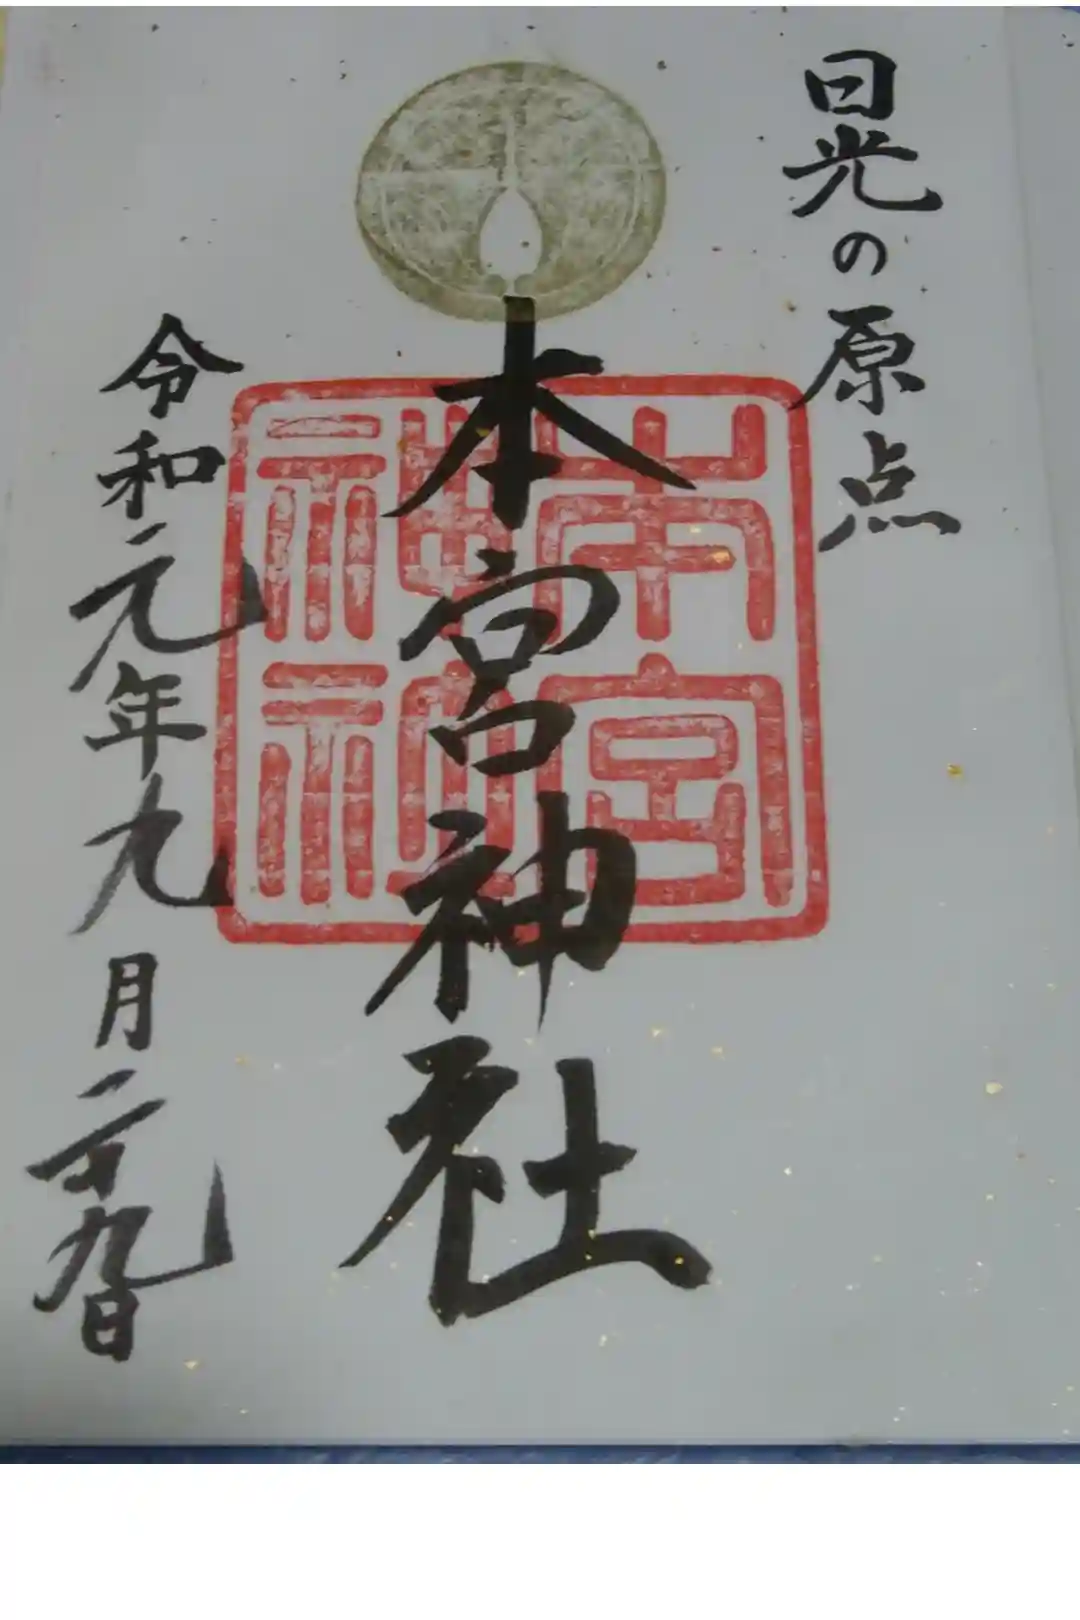 日光の原点
本宮神社
本宮
神社
令和元年九月二十九日